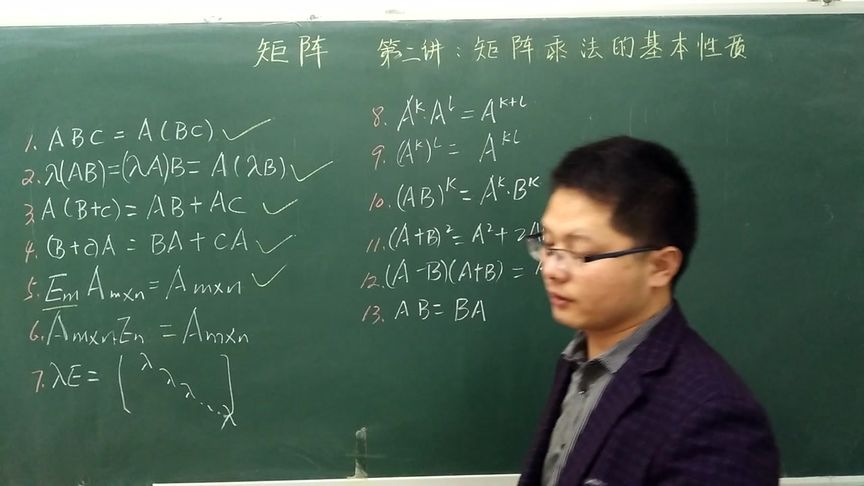 矩阵 第二讲:矩阵乘法的基本性质
1. ABC = A(BC) ✓
2. λ(AB)=(λA)B= A(λB) ✓
3. A(B+C) = AB + AC ✓
4. (B+C)A = BA + CA ✓
5. EₘAₘₓₙ = Aₘₓₙ ✓
6. AₘₓₙEₙ = Aₘₓₙ
7. λE = [λ λ λ ... λ]
8. Aᴷ·Aᴸ = Aᴷ⁺ᴸ
9. (Aᴷ)ᴸ = Aᴷᴸ
10. (AB)ᴷ = Aᴷ·Bᴷ
11. (A+B)² = A² + 2A
12. (A-B)(A+B) =
13. AB = BA